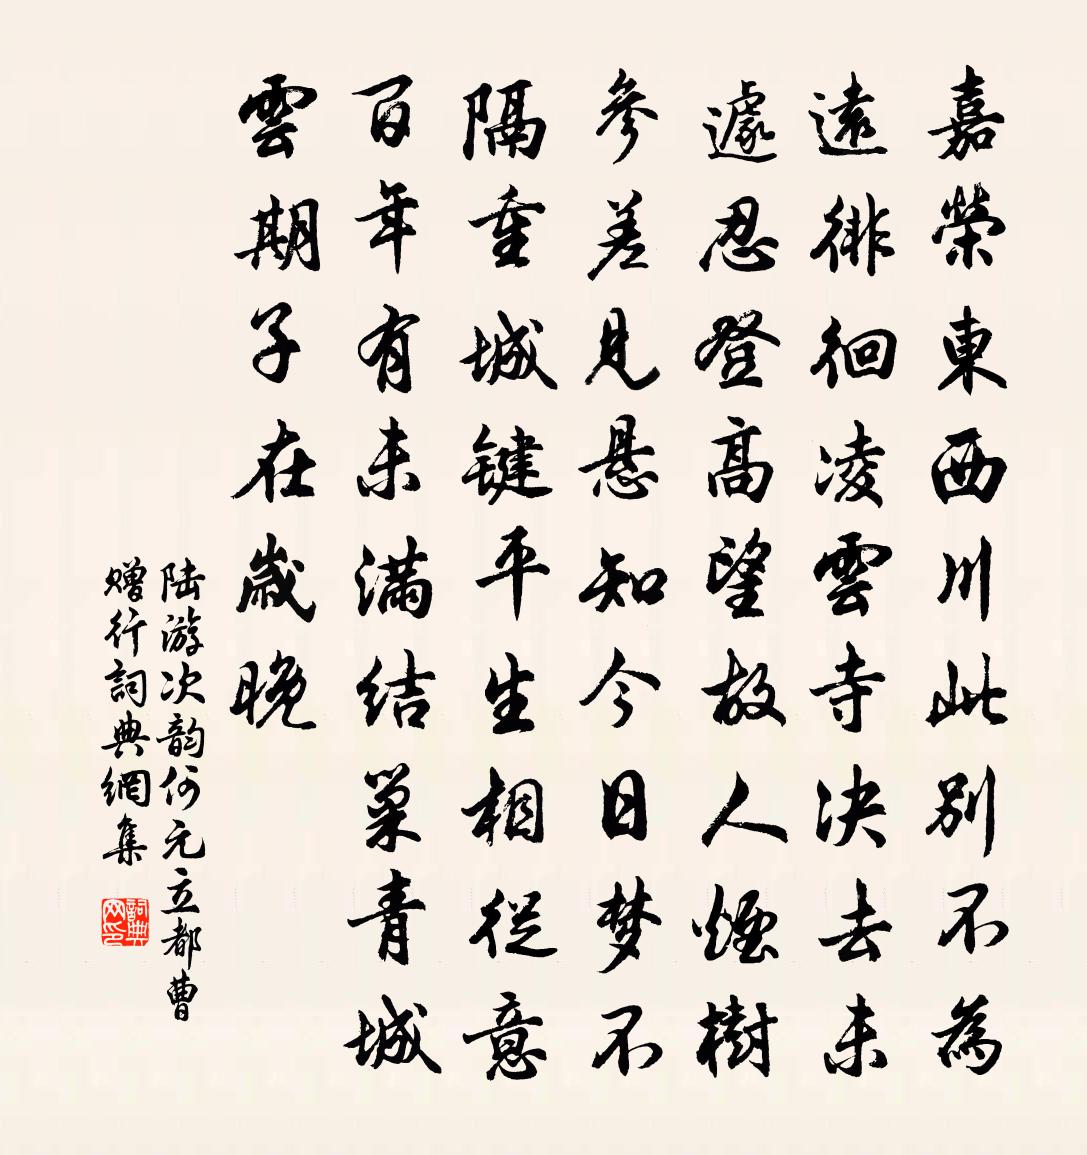 嘉榮東西川此別不為
遠徘徊凌雲寺決去未
遽忍登高望故人煙樹
參差見懸知今日梦不
隔重城键平生相從意
百年有未滿结巢青城
雲期子在歲晚
陆游次韵何元立都曹
赠行詞典網集
詞典网印